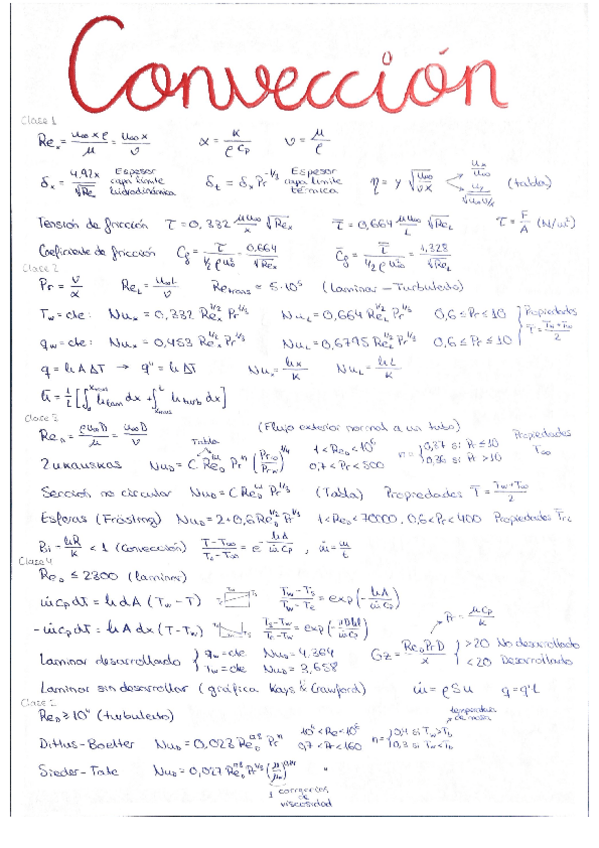 Convección
Clase 1
Re_x = u∞ x ρ / μ = u∞ x / ν    α = k / ρ c_p    ν = μ / ρ
δ_x = 4,92x / √Re_x  Espesor capa límite hidrodinámica    δ_t = δ_x Pr^-1/3  Espesor capa límite térmica    η = y √(u∞ / νx)  u_x / u∞  u_y / √(u∞ν/x)  (tabla)
Tensión de fricción  τ = 0,332 μu∞/x √Re_x    τ̄ = 0,664 μu∞/L √Re_L    τ = F/A (N/m²)
Coeficiente de fricción  C_f = τ / ½ρu∞² = 0,664 / √Re_x    C̄_f = τ̄ / ½ρu∞² = 1,328 / √Re_L
Clase 2
Pr = ν/α    Re_L = u∞L / ν    Re_trans = 5·10⁵  (laminar - Turbulento)
T_w = cte:  Nu_x = 0,332 Re_x^1/2 Pr^1/3    Nu_L = 0,664 Re_L^1/2 Pr^1/3    0,6 ≤ Pr < 10  Propiedades
q_w = cte:  Nu_x = 0,453 Re_x^1/2 Pr^1/3    Nu_L = 0,6795 Re_L^1/2 Pr^1/3    0,6 ≤ Pr ≤ 10  T̄ = (T_w + T∞) / 2
q = h A ΔT → q'' = h ΔT    Nu_x = hx / k    Nu_L = hL / k
h̄ = 1/L [∫₀^xtrans h_lam dx + ∫_xtrans^L h_turb dx]
Clase 3
(Flujo exterior normal a un tubo)
Re_D = ρu∞D / μ = u∞D / ν
Zukauskas  Nu_D = C Re_D^m Pr^n (Pr∞ / Pr_w)^1/4  Tabla    1 < Re_D < 10⁶  0,7 < Pr < 500    n = 0,37 si Pr ≤ 10  0,36 si Pr > 10  Propiedades T∞
Sección no circular  Nu_D = C Re_D^m Pr^1/3    (Tabla)  Propiedades T̄ = (T_w + T∞) / 2
Esferas (Frösling)  Nu_D = 2 + 0,6 Re_D^1/2 Pr^1/3    1 < Re_D < 70000, 0,6 < Pr < 400  Propiedades
Bi = hR / k < 1 (Convección)
Clase 4
Re_D ≤ 2300 (laminar)
ṁc_p dT = h dA (T_w - T)
-ṁc_p dT = h A dx (T - T_w)
Laminar desarrollado  q_w = cte  Nu_D = 4,364
T_w = cte  Nu_D = 3,658
Pr = μC_p / k
Gz = Re_D Pr D / x  > 20 No desarrollado
< 20 Desarrollado
Laminar sin desarrollar (gráfica Kays & Crawford)    ṁ = ρSu    q = q'L
Re_D ≥ 10⁴ (turbulento)
Dittus-Boelter  Nu_D = 0,023 Re_D^0,8 Pr^n    10⁴ < Re < 10⁶  0,7 < Pr < 160    n = 0,4 si T_w > T_b  0,3 si T_w < T_b  temperatura de
Sieder-Tate  Nu_D = 0,027 Re_D^0,8 Pr^1/3    "
viscosidad